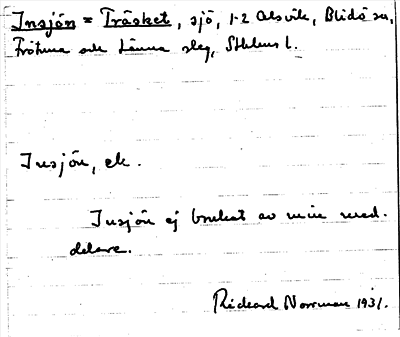 Insjön = Träsket, sjö, 1-2 Alsvik, Blidö sn,
Frötuna och Länna slg, Sthlms l.
Insjön, ek.
Insjön ej brukat av min med-
delare.
Rickard Norrman 1931.